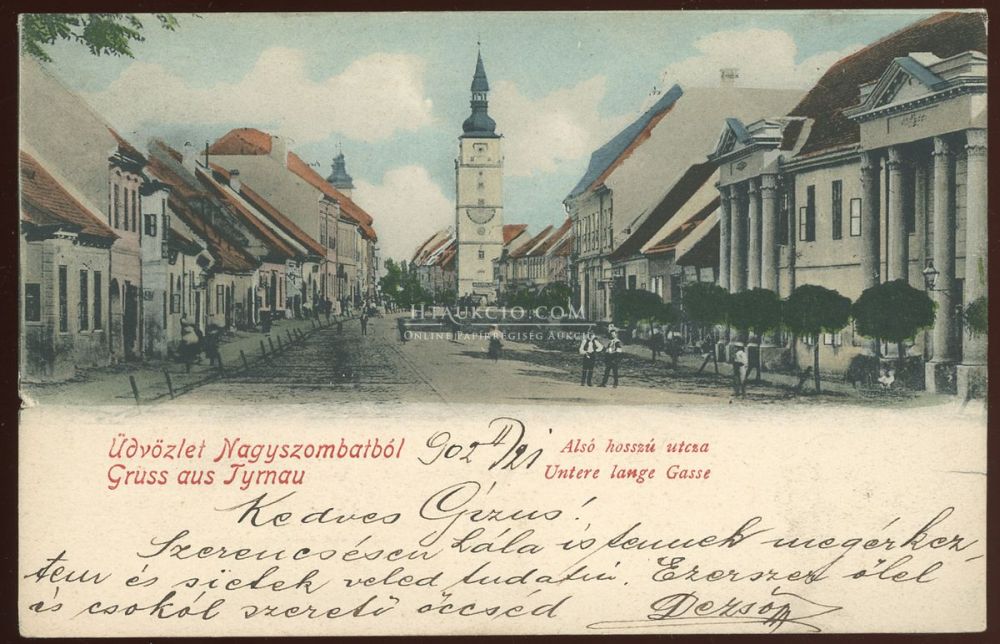 HTAUKCIO.COM
ONLINE PAPÍRRÉGISÉG AUKCIÓ
Üdvözlet Nagyszombatból
Gruss aus Tyrnau
902 II/21
Alsó hosszú utcza
Untere lange Gasse
Kedves Gizus!
Szerencsésen hála istennek megérkez,
tem és sietek veled tudatni. Ezerszer ölel
és csokól szerető öccséd Dezsőd